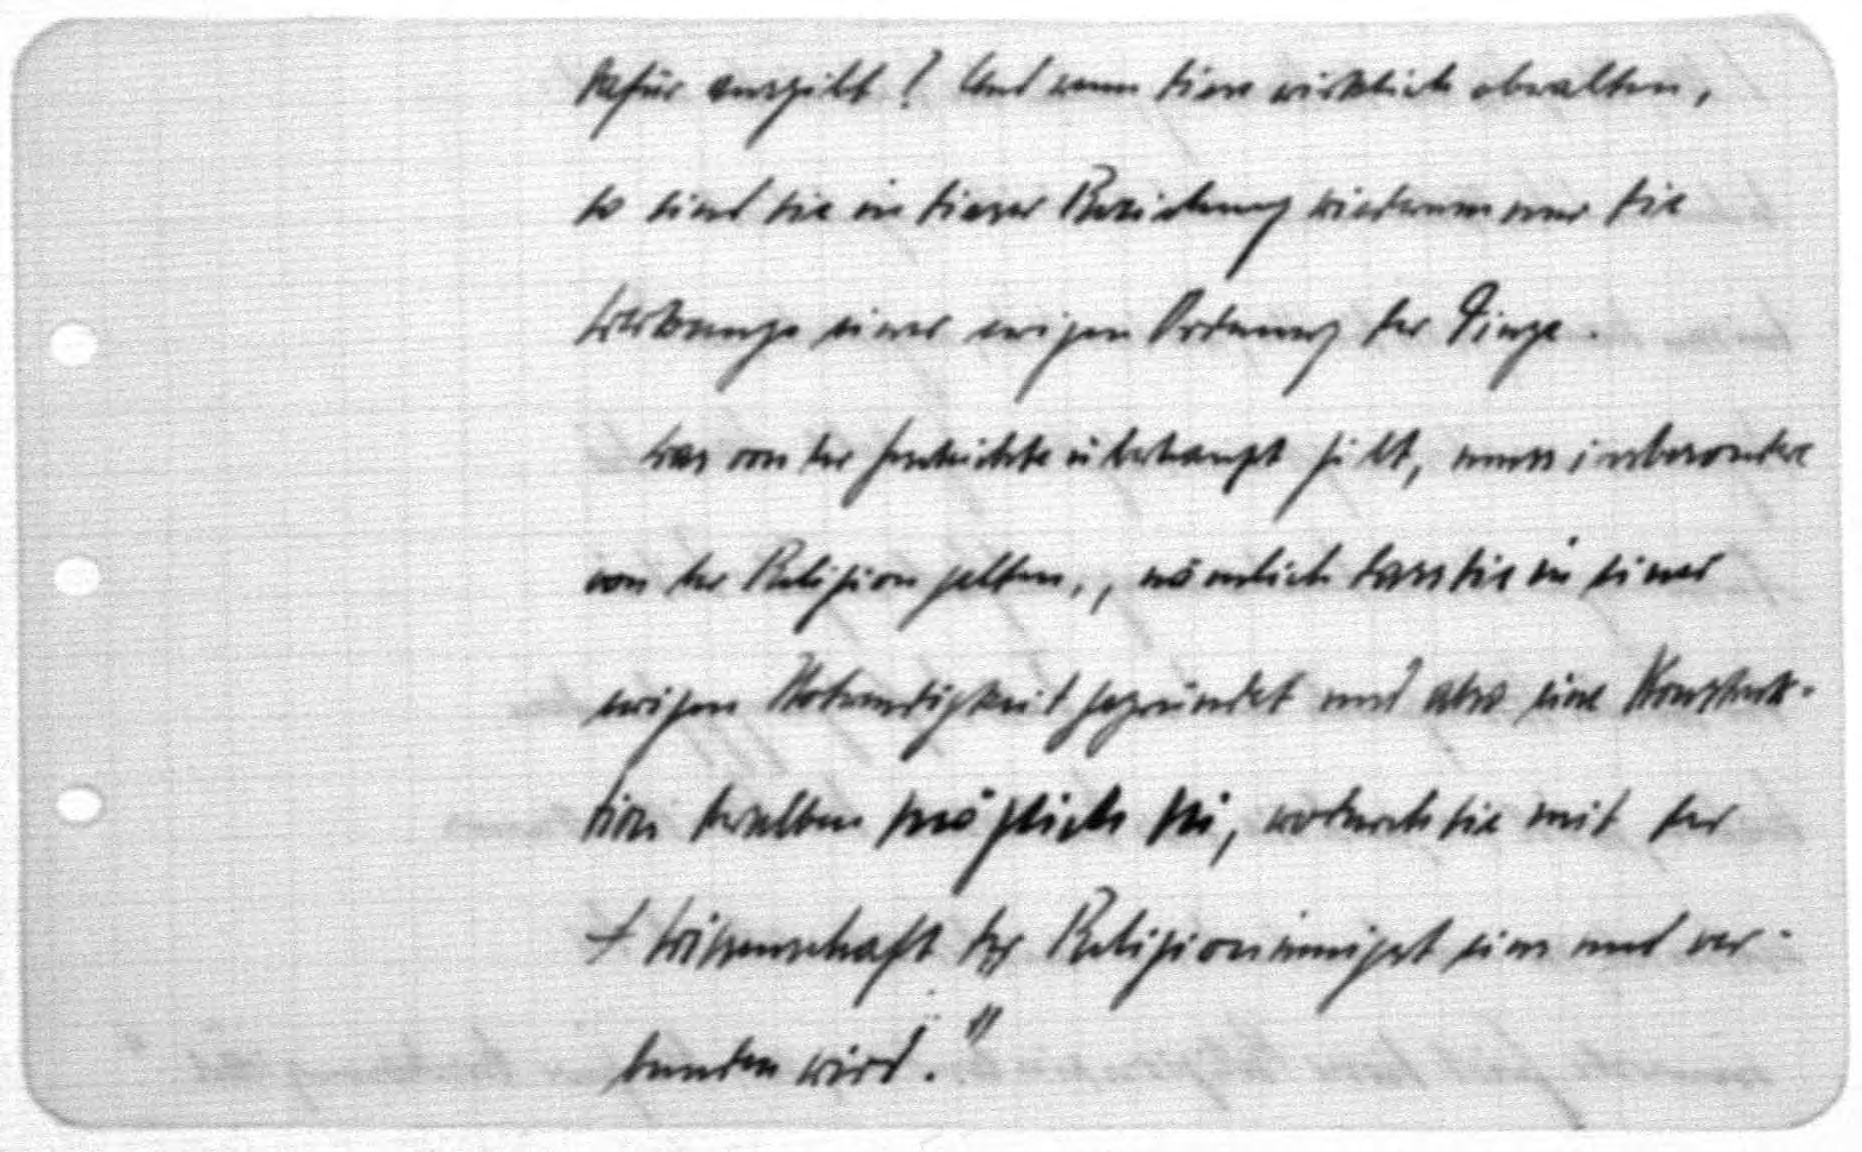 dafür ausgibt? Und wenn diese wirklich obwalten,
so sind sie in dieser Beziehung wiederum nur die
Werkzeuge einer ewigen Ordnung der Dinge.
Was von der Geschichte überhaupt gilt, muss insbesondere
von der Religion gelten,, nämlich dass sie in einer
ewigen Notwendigkeit gegründet und also eine Konstruk-
tion derselben möglich sei, wodurch sie mit der
Wissenschaft der Religion innigst eins und ver-
bunden wird."